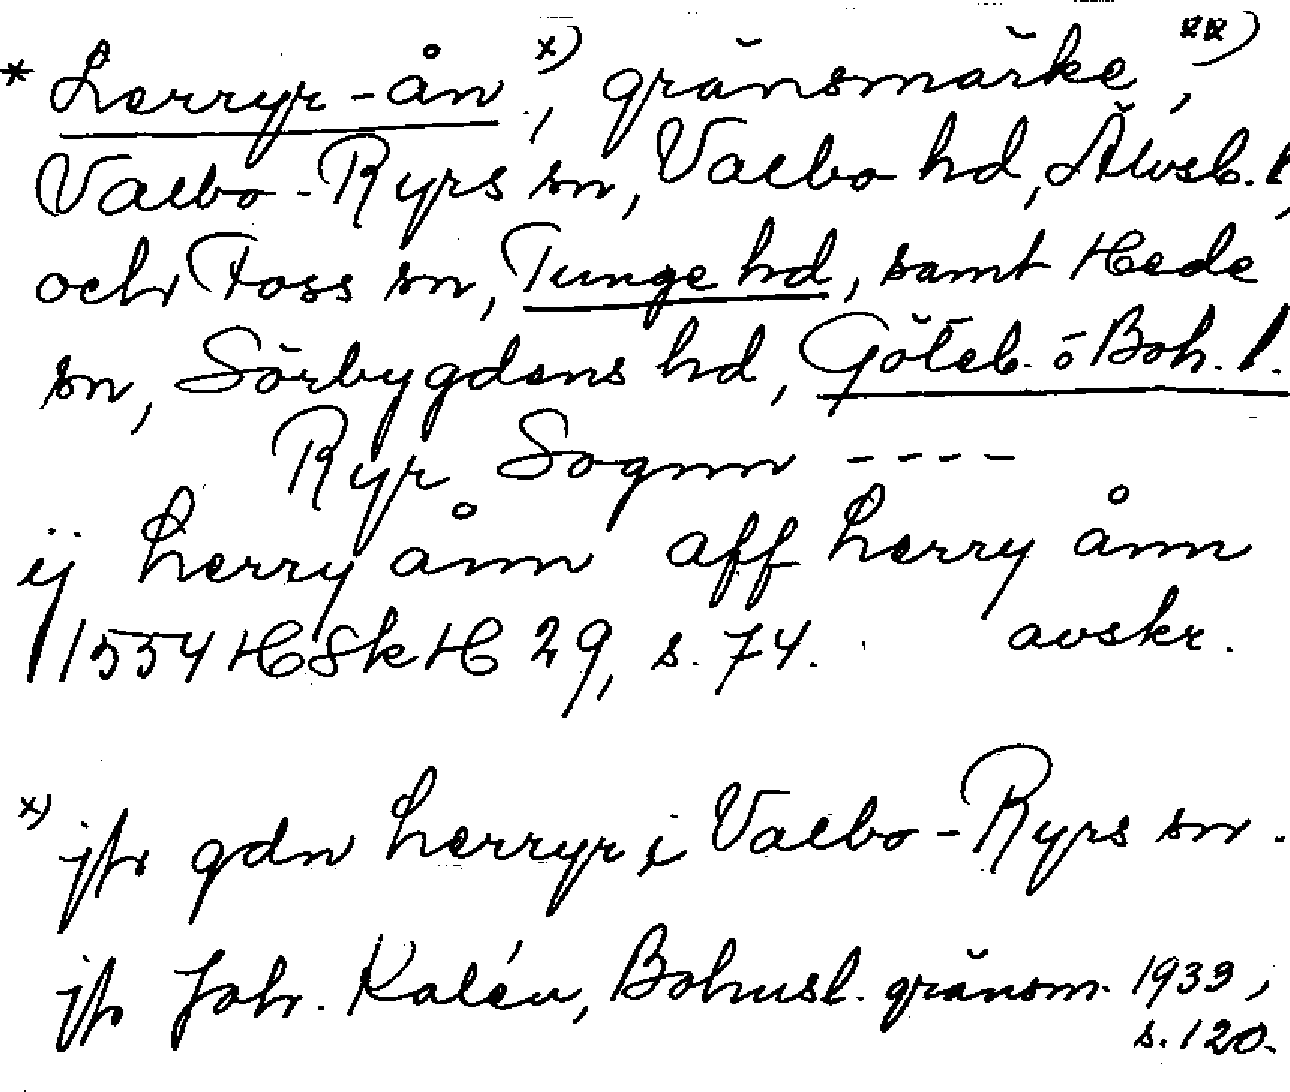 * Lerryr-ån x), gränsmärke xx),
Valbo-Ryrs sn, Valbo hd, Älvsb. l,
och Foss sn, Tunge hd, samt Hede
sn, Sörbygdens hd, Göteb. o Boh. l.
Ryr Sognn ----
ij Lerry ånn aff Lerry ånn
1554 HSkH 29, s. 74. avskr.
x) jfr gdn Lerryr i Valbo-Ryrs sn.
jfr Joh. Kalén, Bohusl. gränsm. 1939,
s. 120.